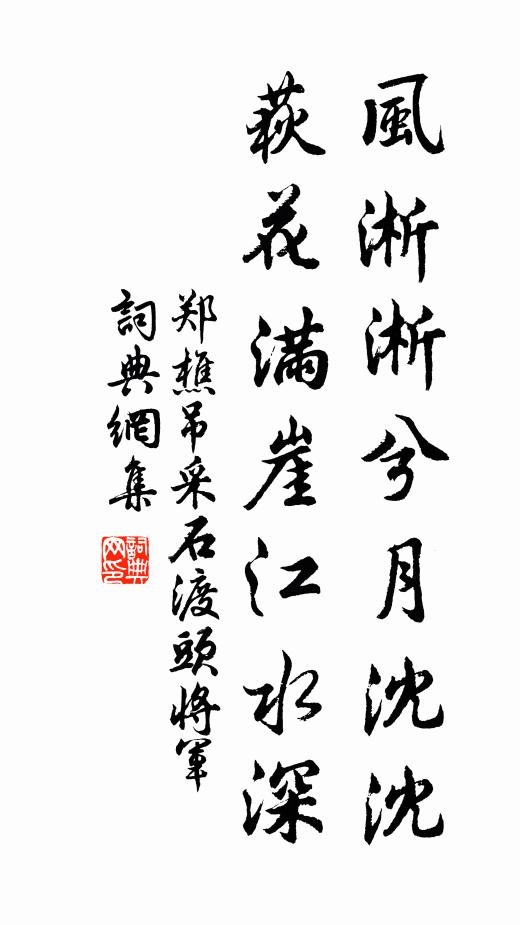 風淅淅兮月沈沈
萩花滿崖江水深
郑樵吊采石渡頭將軍
詞典網集
詞典网印